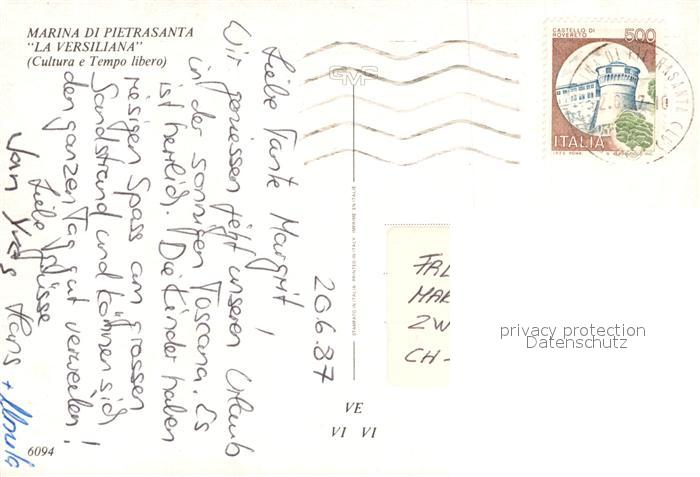 MARINA DI PIETRASANTA
"LA VERSILIANA"
(Cultura e Tempo libero)
CASTELLO DI
ROVERETO
500
ITALIA
GMC
20.6.87
Liebe Tante Margrit,
Wir geniessen jetzt unseren Urlaub
in der sonnigen Toscana. Es
ist herrlich. Die Kinder haben
riesigen Spass am grossen
Sandstrand und können sich
den ganzen Tag gut verweilen!
Liebe Grüsse
Hans + Ursula
FAL
MAR
ZW
CH-
privacy protection
Datenschutz
VE
VI VI
6094